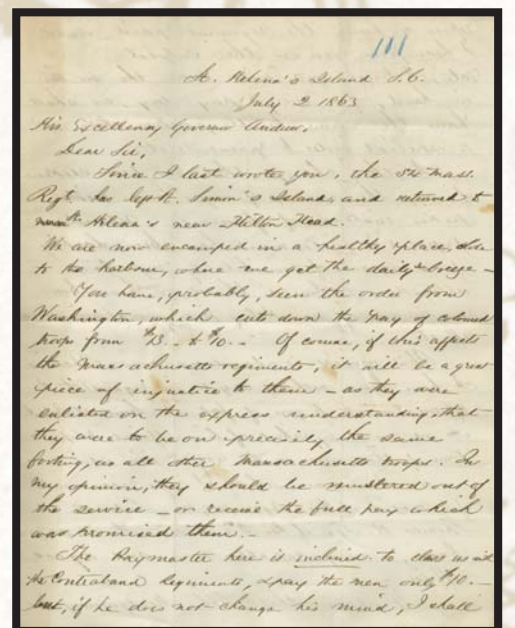 111
St. Helena's Island S.C.
July 2 1863
His Excellency Governor Andrew,
Dear Sir,
Since I last wrote you, the 54 Mass.
Regt. has left St. Simon's Island, and returned to
St. Helena's near Hilton Head.
We are now encamped in a healthy place, close
to the harbour, where we get the daily breeze –
You have, probably, seen the order from
Washington, which cuts down the pay of colored
troops from $13.– to $10.– Of course, if this affects
the Massachusetts regiments, it will be a great
piece of injustice to them – as they were
enlisted on the express understanding, that
they were to be on precisely the same
footing, as all other Massachusetts troops. In
my opinion, they should be mustered out of
the service – or receive the full pay which
was promised them. –
The Paymaster here is inclined to class us with
the Contraband Regiments, & pay the men only $10.–
but, if he does not change his mind, I shall